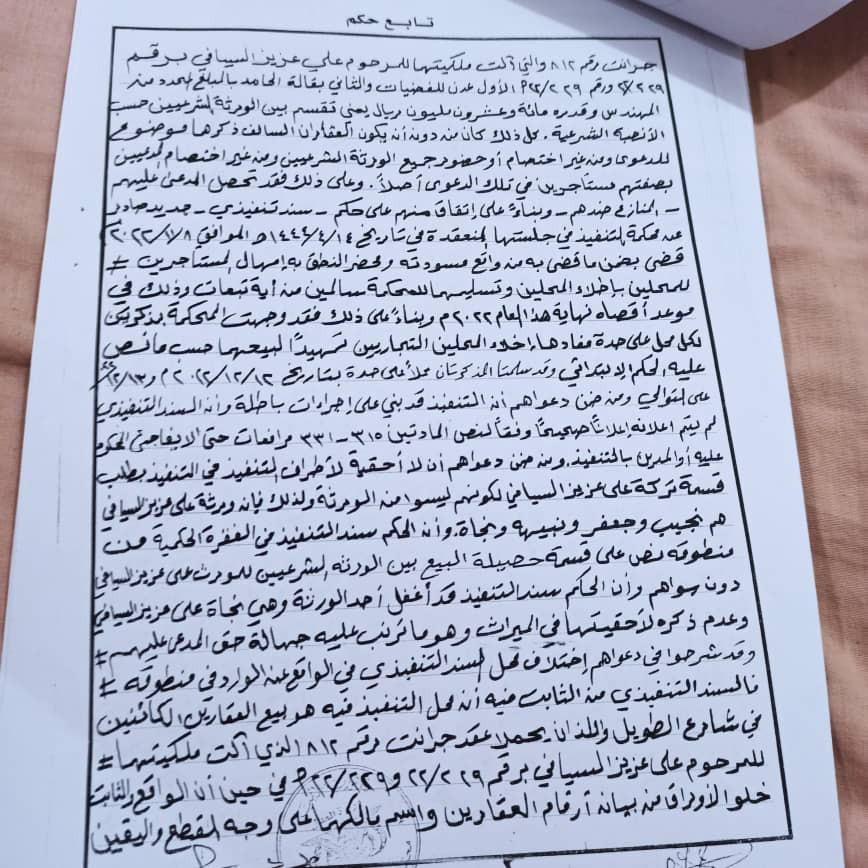 تابع حكم
جرانت رقم ٨١٢ والتي آلت ملكيتها للمرحوم علي عزيز السياني برقم
٢٢/٢٢٩ ورقم ٢٢/٢٢٩م الأول عدن للفضيات والثاني بقالة الحامد بالمبلغ المحدد من
المهندس وقدره مائة وعشرون مليون ريال يعني تقسم بين الورثة الشرعيين حسب
الأنصبة الشرعية. كل ذلك كان من دون أن يكون العقاران السالف ذكرها موضوع
للدعوى ومن غير اختصام أو حضور جميع الورثة الشرعيين ومن غير اختصام المدعيين
بصفتهم مستأجرين في تلك الدعوى أصلاً. وعلى ذلك فقد تحصل المدعى عليهم
- المنازع ضدهم - وبناءً على إتفاق منهم على حكم - سند تنفيذي - جديد صادر
عن محكمة التنفيذ في جلستها المنعقدة في تاريخ ١٤٤٤/٤/١٤هـ الموافق ٢٠٢٢/١١/٨م
قضى بضمن ما قضى به من واقع مسودته ومحضر النطق به إمهال المستأجرين #
للمحلين بإخلاء المحلين وتسليمها للمحكمة سالمين من أية تبعات وذلك في
موعد أقصاه نهاية هذا العام ٢٠٢٢م وبناءً على ذلك فقد وجهت المحكمة مذكرتين
لكل محل على حدة مفادها إخلاء المحلين التجاريين تمهيداً لبيعهما حسب ما نص
عليه الحكم الإبتدائي وقد سلمتا المذكرتان كلاً على حدة بتاريخ ٢٠٢٢/١٢/١٢م و١٢/١٣/٢٢
على التوالي ومن ضمن دعواهم أن التنفيذ قد بني على إجراءات باطلة وأن السند التنفيذي
لم يتم إعلانه إعلاناً صحيحاً وفقاً لنص المادتين ٣١٥-٣٣١ مرافعات حتى لا يفاجئ المحكوم
عليه أو المدين بالتنفيذ. ومن ضمن دعواهم أن لا أحقية لأطراف التنفيذ في التنفيذ بطلب
قسمة تركة علي عزيز السياني لكونهم ليسوا من الورثة ولذلك فإن ورثة علي عزيز السياني
هم نجيب وجعفر ونبيهه ونجاة. وأن الحكم سند التنفيذ في الفقرة الحكمية من
منطوقه نص على قسمة حصيلة البيع بين الورثه الشرعيين للمورث علي عزيز السياني
دون سواهم وأن الحكم سند التنفيذ قد أغفل أحد الورثة وهي نجاة علي عزيز السياني
وعدم ذكره لأحقيتها في الميراث وهو ما ترتب عليه جهالة حق المدعى عليهم #
وقد شرحوا في دعواهم إختلاف محل السند التنفيذي في الواقع عنه الوارد في منطوقه #
فالسند التنفيذي من الثابت فيه أن محل التنفيذ فيه هو بيع العقارين الكائنين
في شارع الطويل واللذان يحملا عقد جرانت رقم ٨١٢ الذي آلت ملكيتهما #
للمرحوم علي عزيز السياني برقم ٢٢/٢٢٩ و٢٢/٢٢٩م في حين أن الواقع والثابت
خلو الأوراق من بيانه أرقام العقارين واسم مالكهما على وجه القطع واليقين